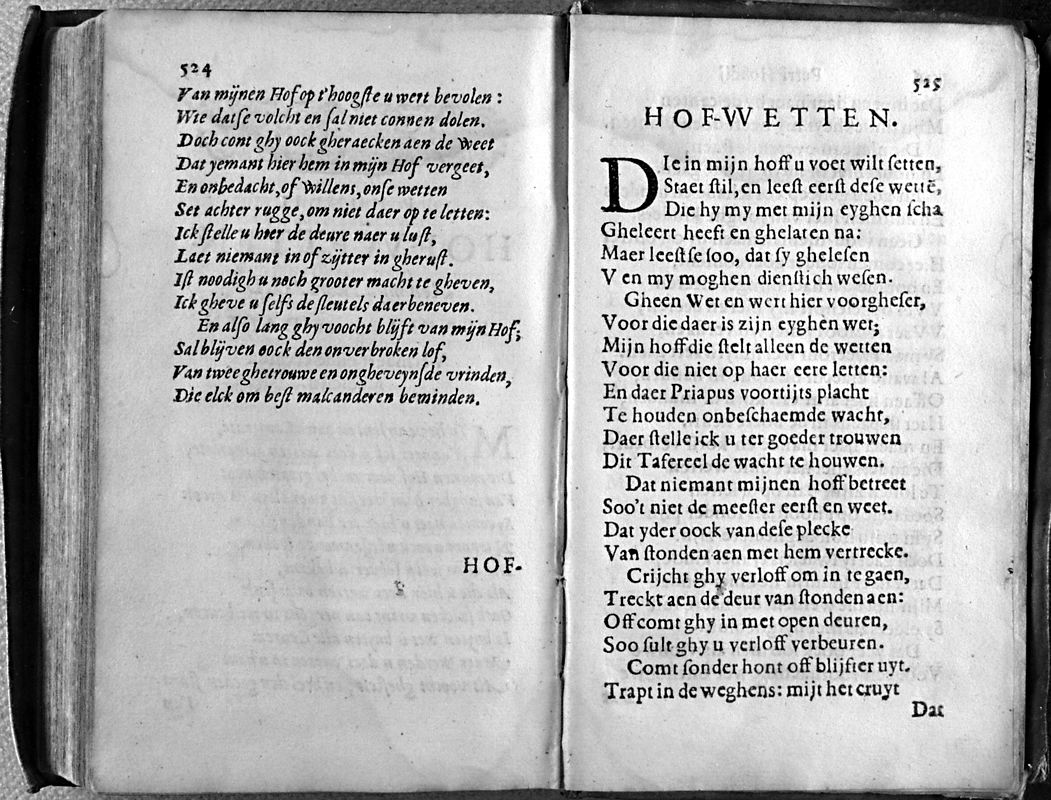 524
Van mijnen Hof op t'hoogste u wert bevolen :
Wie datse volcht en sal niet connen dolen.
Doch cont ghy oock gheraecken aen de Weet
Dat yemant hier hem in mijn Hof vergeet,
En onbedacht, of willens, onse wetten
Set achter rugge, om niet daer op te letten:
Ick stelle u hier de deure naer u lust,
Laet niemant in of zijtter in gherust.
Ist noodigh u noch grooter macht te gheven,
Ick gheve u selfs de sleutels daerbeneven.
En also lang ghy voocht blijft van mijn Hof;
Sal blijven oock den onverbroken lof,
Van twee ghetrouwe en ongheveynsde vrinden,
Die elck om best malcanderen beminden.
HOF-
525
HOF-WETTEN.
DIe in mijn hoff u voet wilt setten,
Staet stil, en leest eerst dese wettē,
Die hy my met mijn eyghen scha
Gheleert heeft en ghelaten na:
Maer leestse soo, dat sy ghelesen
V en my moghen dienstich wesen.
Gheen Wet en wert hier voorgheset,
Voor die daer is zijn eyghen wet;
Mijn hoff die stelt alleen de wetten
Voor die niet op haer eere letten:
En daer Priapus voortijts placht
Te houden onbeschaemde wacht,
Daer stelle ick u ter goeder trouwen
Dit Tafereel de wacht te houwen.
Dat niemant mijnen hoff betreet
Soo't niet de meester eerst en weet.
Dat yder oock van dese plecke
Van stonden aen met hem vertrecke.
Crijcht ghy verloff om in te gaen,
Treckt aen de deur van stonden aen:
Off comt ghy in met open deuren,
Soo sult ghy u verloff verbeuren.
Comt sonder hont off blijfter uyt.
Trapt in de weghens: mijt het cruyt
Dat